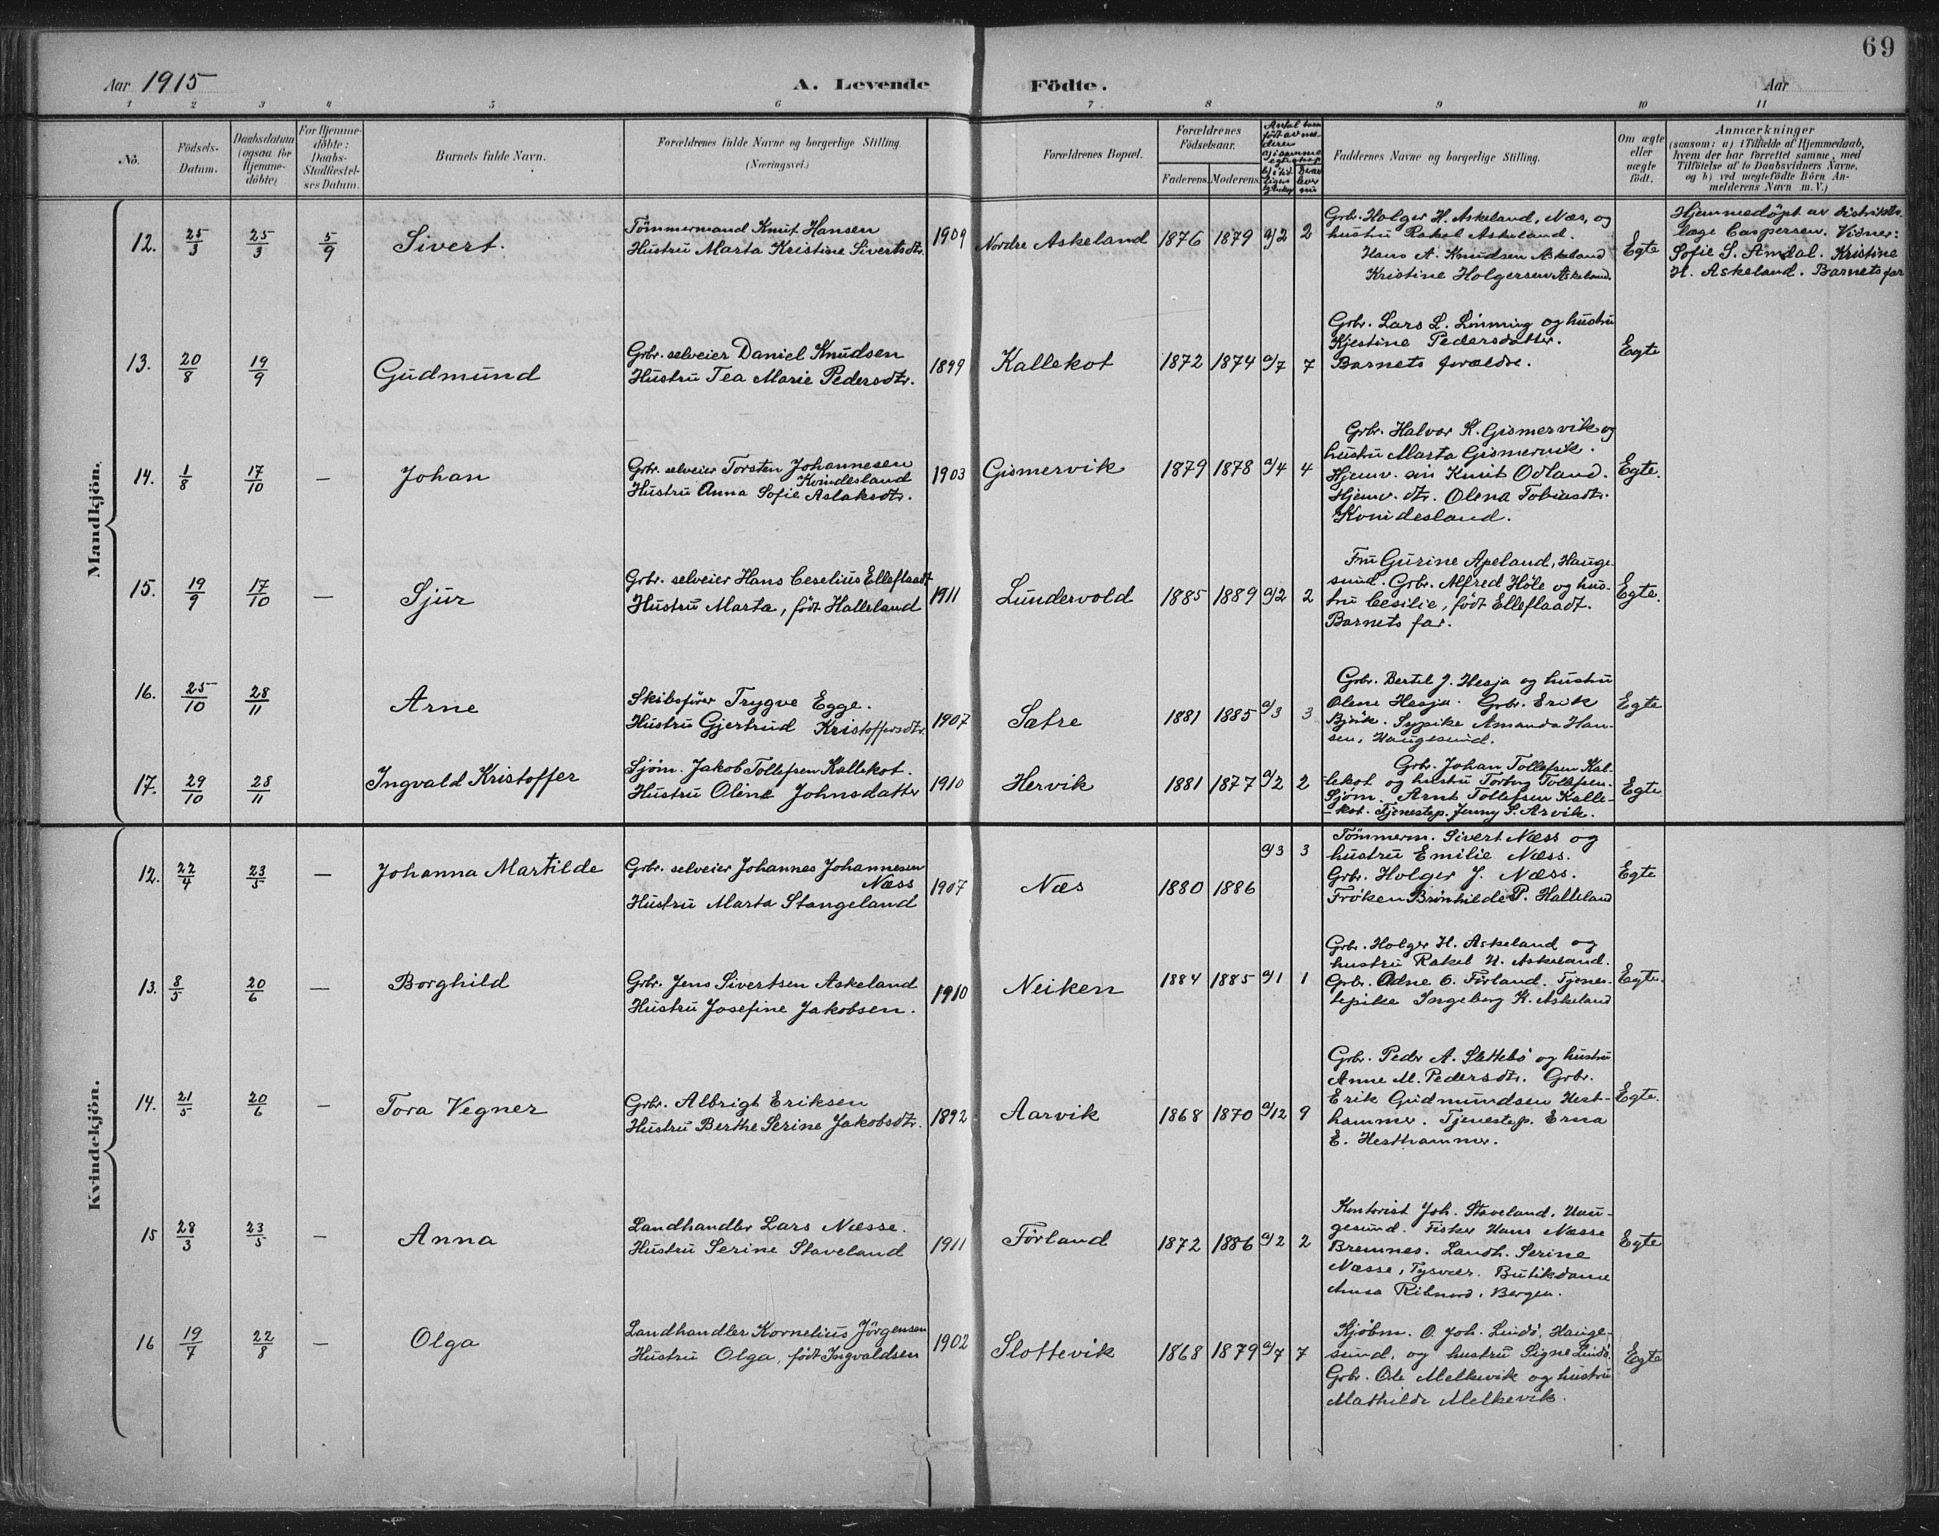 69
Aar 1915
A. Levende Födte.
Aar
1 2 3 4 5 6 7 8 9 10 11
No.
Födsels-
Datum.
Daabsdatum
(ogsaa for
Hjemme-
döbte)
For Hjemme-
döbte:
Daabs-
Stadfæstel-
ses Datum.
Barnets fulde Navn.
Forældrenes fulde Navne og borgerlige Stilling.
(Næringsvei.)
Forældrenes Bopæl.
Forældrenes
Födselsaar.
Faderens. Moderens.
Faddernes Navne og borgerlige Stilling.
Om ægte
eller
uægte
født.
Anmærkninger
(saasom: a) i Tilfælde af Hjemmedaab,
hvem der har forrettet samme, med
Tilföielse af to Daabsvidners Navne,
og b) ved uægtefödte Börn An-
melderens Navn m. V.)
Mandkjön.
12. 25/3 25/3 5/9 Sivert.
Tømmermand Knut Hansen
Hustru Marta Kristine Sivertsdtr.
1909 Nordre Askeland 1876 1879 a/2 2
Grbr. Holger H. Askeland, Næs, og
hustru Rakel Askeland.
Hans A. Knudsen Askeland
Kristine Holgersen Askeland.
Egte
Hjemmedöpt av distrikts-
læge Caspersen. Vidner:
Sofie S. Amdal. Kristine
H. Askeland. Barnets far
13. 20/8 19/9 Gudmund
Grbr. selveier Daniel Knudsen
Hustru Tea Marie Pedersdtr.
1899 Kallekot 1872 1874 a/7 7
Grbr. Lars L. Lönning og hustru
Kjestine Pedersdatter.
Barnets forældre.
Egte
14. 1/8 17/10 — Johan
Grbr. selveier Torsten Johannesen
Kvindesland
Hustru Anna Sofie Aslaksdtr.
1903 Gismervik 1879 1878 a/4 4
Grbr. Halvor K. Gismervik og
hustru Marta Gismervik.
Hjemv. sön Knut Odland.
Hjemv. dtr. Olena Tobiasdtr.
Kvindesland.
Egte.
15. 19/9 17/10 — Sjur
Grbr. selveier Hans Ceselius Elleflaadt
Hustru Marta, født Halleland
1911 Lundervold 1885 1889 a/2 2
Fru Gurine Apeland, Hauge-
sund. Grbr. Alfred Höle og hus-
tru Cesilie, født Elleflaadt.
Barnets far.
Egte.
16. 25/10 28/11 Arne
Skibsfører Trygve Egge.
Hustru Gjertrud Kristoffersdtr.
1907 Satre 1881 1885 a/3 3
Grbr. Bertel J. Hesja og hustru
Olene Hesja. Grbr. Erik
Bjöik. Sypike Amanda Han-
sen, Haugesund.
Egte
17. 29/10 28/11 Ingvald Kristoffer
Sjøm. Jakob Tollefsen Kallekot.
Hustru Oline Johnsdatter
1910 Hervik 1881 1877 a/2 2
Grbr. Johan Tollefsen Kal-
lekot og hustru Torborg Tollefsen.
Sjøm. Arnt Tollefsen Kalle-
-kot. Tjenestep. Jenny S. Arvik.
Egte
Kvindekjön.
12. 22/4 23/5 — Johanna Martilde
Grbr. selveier Johannes Johannesen
Næss
Hustru Marta Stangeland
1907 Næs 1880 1886 a/3 3
Tömmerm. Sivert Næss og
hustru Emilie Næss.
Grbr. Holger J. Næss.
Fröken Brönhilde P. Halleland
Egte
13. 8/5 20/6 — Borghild
Grbr. Jens Sivertsen Askeland
Hustru Josefine Jakobsen.
1910 Neiken 1884 1885 a/1 1
Grbr. Holger H. Askeland og
hustru Rakel H. Askeland.
Grbr. Odne O. Förland. Tjenes-
tepike Ingeborg K. Askeland
Egte.
14. 21/5 20/6 — Tora Vegner
Grbr. Albrigt Eriksen
Hustru Berthe Serine Jakobsdtr.
1892 Aarvik 1868 1870 a/12 9
Grbr. Peder A. Slettebö og hustru
Anne M. Pedersdtr. Grbr.
Erik Gudmundsen Hest-
hammer. Tjenestep. Erna
E. Hesthammer.
Egte.
15 28/3 23/5 — Anna
Landhandler Lars Næsse.
Hustru Serine Staveland
1911 Förland 1872 1886 a/2 2
Kontorist Joh. Staveland, Hau-
gesund. Fisker Hans Næsse
Bremnes. Landh. Serine
Næsse, Tysvær. Butikdame
Anna, Bergen.
Egte
16 19/7 22/8 — Olga
Landhandler Kornelius Jörgensen
Hustru Olga, født Ingvaldsen
1902 Slottevik 1868 1879 a/7 7
Kjöbm. O. Joh. Lindö, Hauge-
sund, og hustru Signe Lindö.
Grbr. Ole Melkevik og hustru
Mathilde Melkevik.
Egte